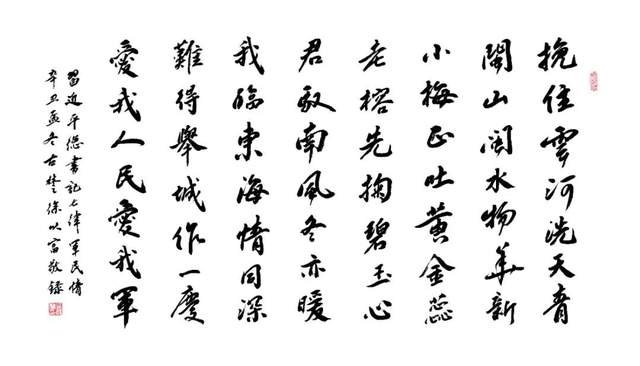 挽住雲河洗天青
閩山閩水物華新
小梅正吐黄金蕊
老榕先掬碧玉心
君馭南風冬亦暖
我臨東海情同深
難得舉城作一慶
愛我人民愛我軍
習近平總書記七律軍民情
辛丑孟冬古楚徐以富敬録